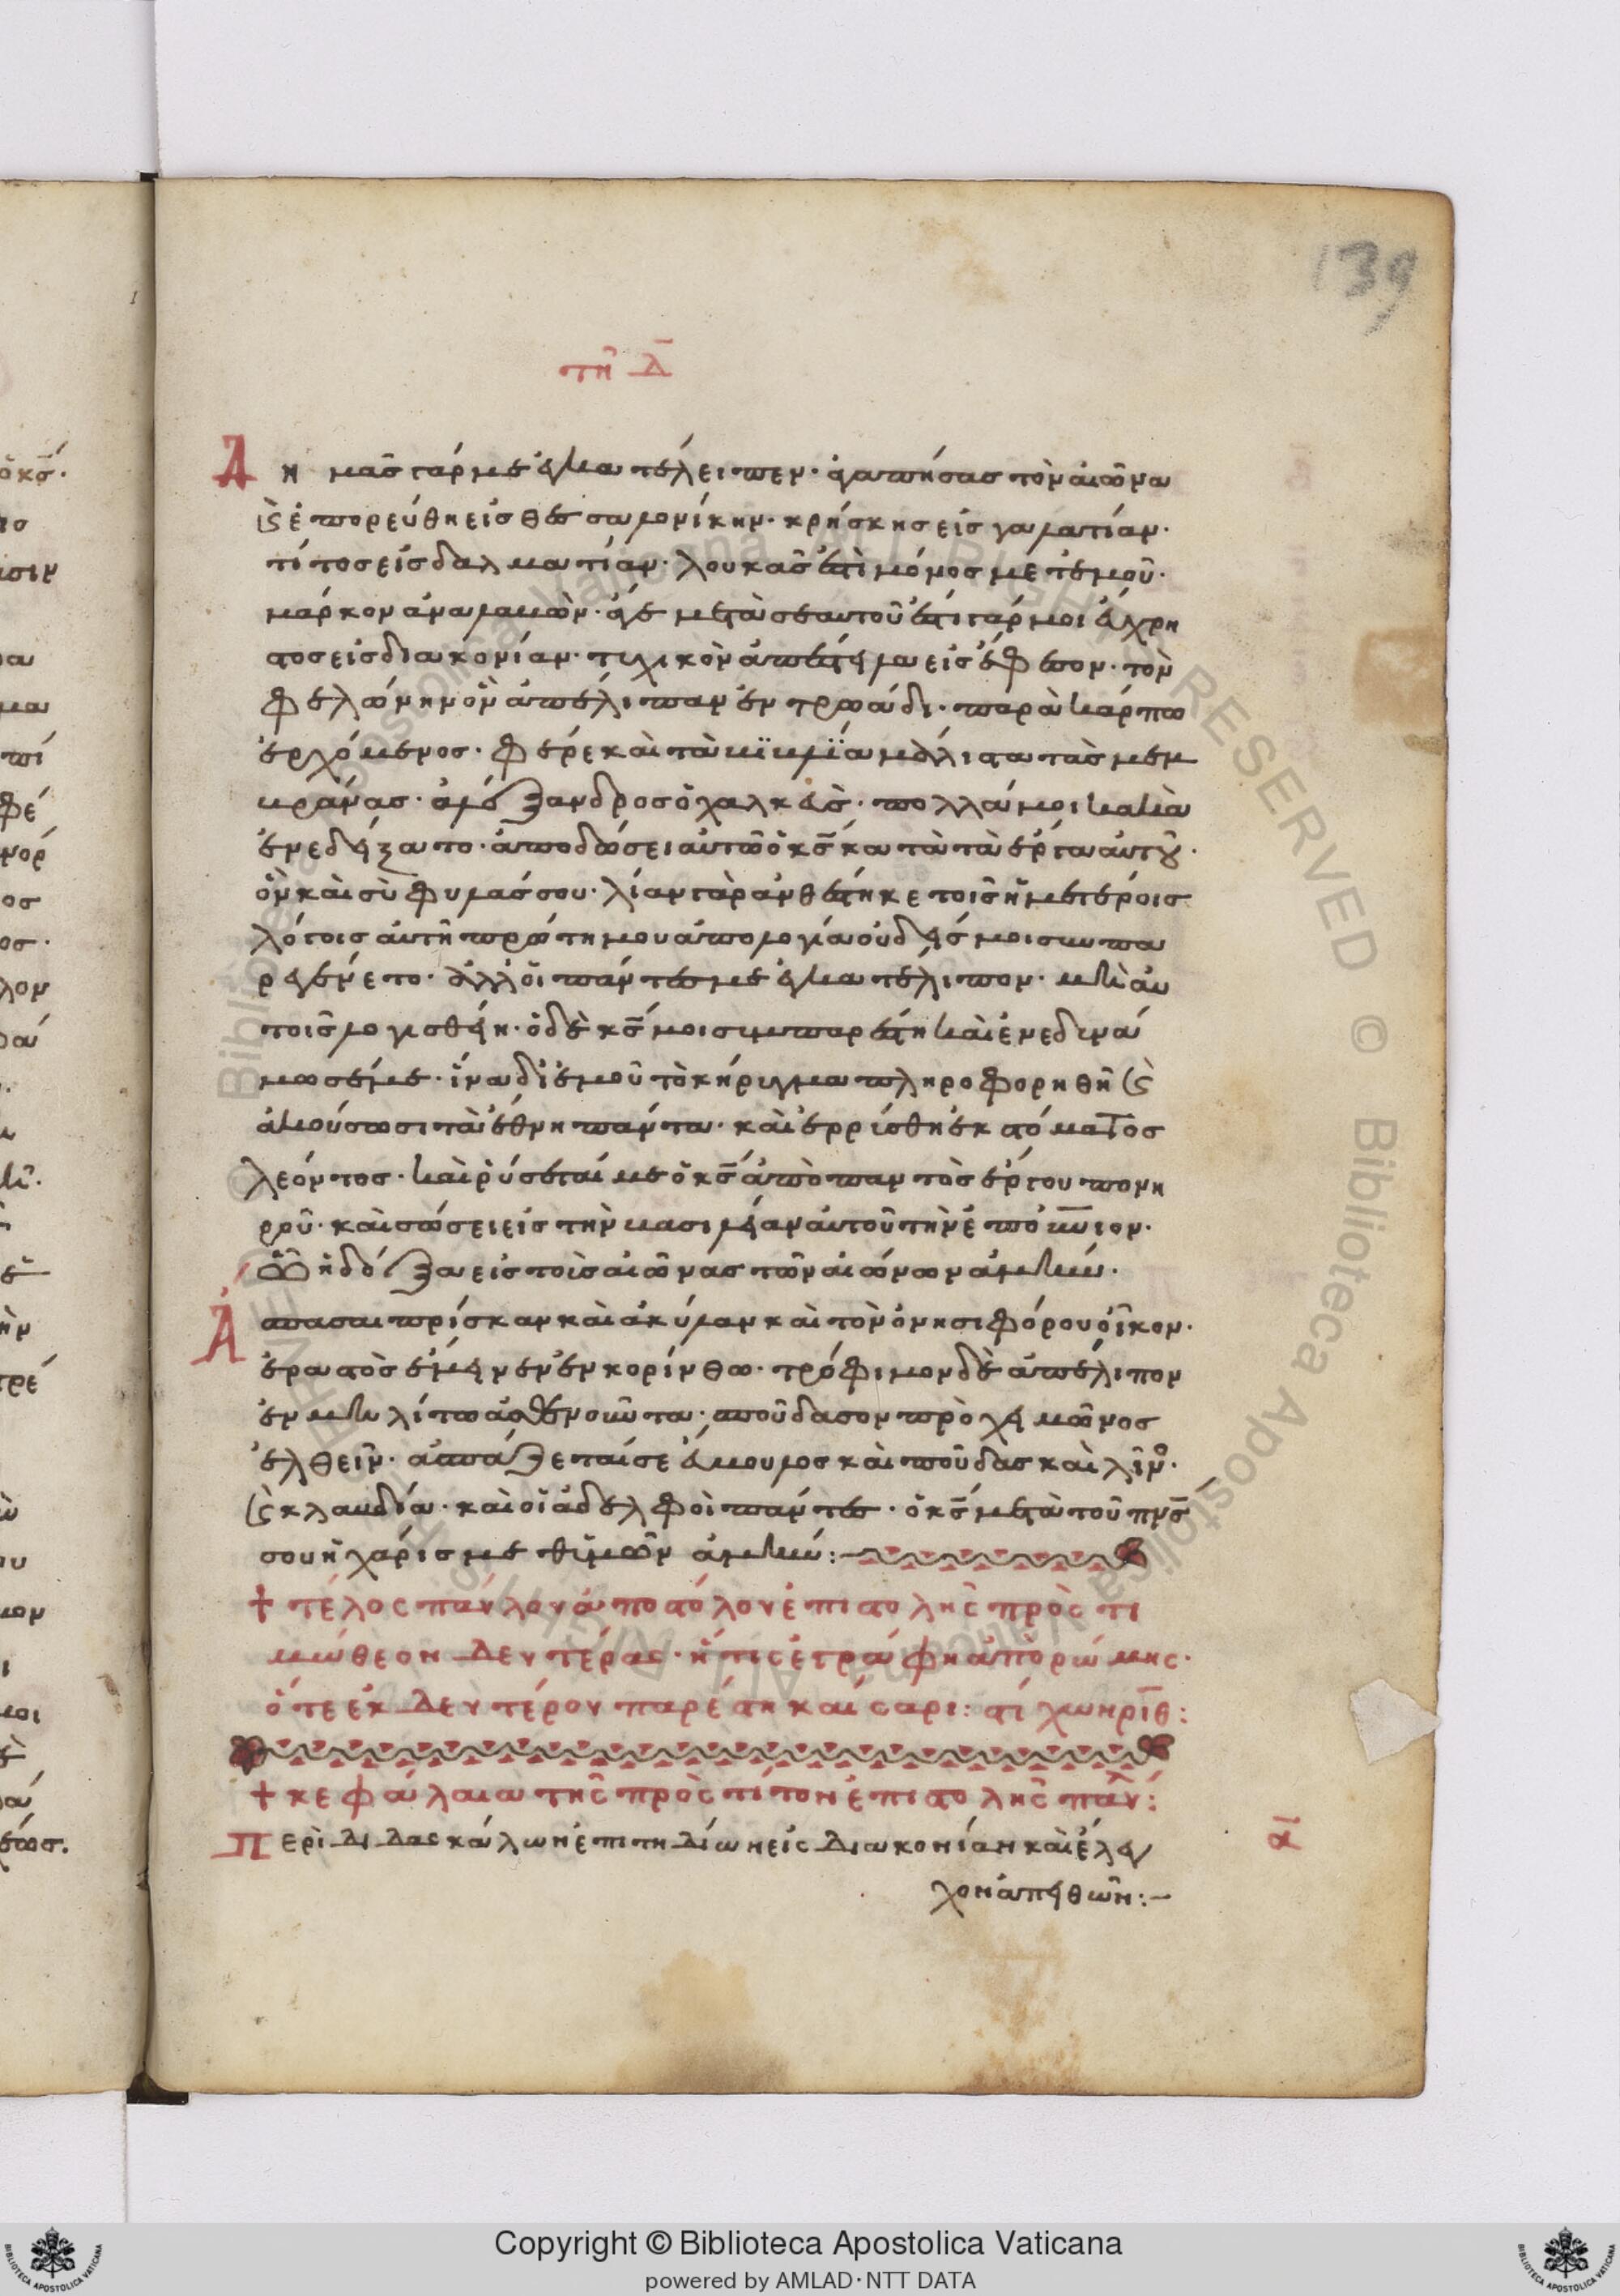 139
τῆ Δ
Δημᾶς γάρ με ἐγκατέλειπεν· ἀγαπήσας τὸν αἰῶνα
καὶ ἐπορεύθη εἰς θεσσαλονίκην· κρήσκης εἰς γαλατίαν·
τίτος εἰς δαλματίαν· λουκᾶς ἐστὶ μόνος μετ ἐμοῦ·
μάρκον ἀναλαβὼν· ἄγε μετὰ σεαυτοῦ ἔστι γάρ μοι εὔχρη
στος εἰς διακονίαν· τιχικὸν ἀπέστειλα εἰς ἔφεσον· τὸν
φελώνην ὃν ἀπέλιπαν ἐν τρωάδι· παρὰ κάρπω
ἐρχόμενος· φέρε καὶ τὰ βϊβλΐα μάλιστα τὰς μεμ
βράνας· ἀλέξανδρος ὁ χαλκεὺς· πολλά μοι κακὰ
ἐνεδείξατο· ἀποδώσει αὐτῶ ὁ κς κατὰ τὰ ἔργα αὐτοῦ·
ὃν καὶ σὺ φυλάσσου· λίαν γὰρ ἀνθέστηκε τοῖς ἡμετέροις
λόγοις ἀυτῆ πρώτη μου ἀπολογία οὐδείς μοι συμπα
ρεγένετο· ἀλλ οἱ πάντες με ἐγκατέλιπον· μὴ αὐ
τοῖς λογισθείη· ὁ δὲ κς μοι συμπαρέστη καὶ ἐνεδυνά
μωσέ με· ἵνα δι ἐμοῦ τὸ κήριγμα πληροφορηθῆ καὶ
ἀκούσωσι τὰ ἔθνη πάντα· καὶ ἐρρίσθη ἐκ στόματος
λεόντος· καὶ ῥύσεταί με ὁ κς ἀπὸ παντὸς ἔργου πονη
ροῦ· καὶ σώσει εἰς τὴν βασιλείαν αὐτοῦ τὴν ἐπουνιον·
ὧ ἡ δόξα εἰς τοὺς αἰῶνας τῶν αἰώνων ἀμήν·
Ἄσπασαι πρίσκαν καὶ ἀκύλαν καὶ τὸν ὀνησιφόρου οἶκον·
ἔραστος ἔμεινεν ἐν κορίνθω· τρόφιμον δὲ ἀπέλιπον
ἐν μηλίτω ἀσθενοῦντα· σπούδασον πρὸ χειμῶνος
ἐλθεῖν· ἀσπάζεταί σε εὔβουλος καὶ πούδὰς καὶ λῖνος·
καὶ κλαυδία· καὶ οἱ ἀδελφοὶ πάντες· ὁ κς μετὰ τοῦ πνς
σου ἡ χάρις μεθ ἡμῶν ἀμήν:
+ τέλος παύλου ἀποστόλου ἐπιστολῆς πρὸς τι
μώθεον δευτέρας· ἥτις ἐγράφη ἀπὸ ρώμης·
ὅτε ἐκ δευτέρου παρέστη καίσαρι: στίχων ριθ:
+ κεφάλαια τῆς πρὸς τίτον ἐπιστολῆς παύ:
Περὶ διδασκάλων ἐπιτηδίων εἰς διακονίαν καὶ ἐλεγ
χον ἀπειθῶν:–
α
Copyright © Biblioteca Apostolica Vaticana
powered by AMLAD·NTT DATA